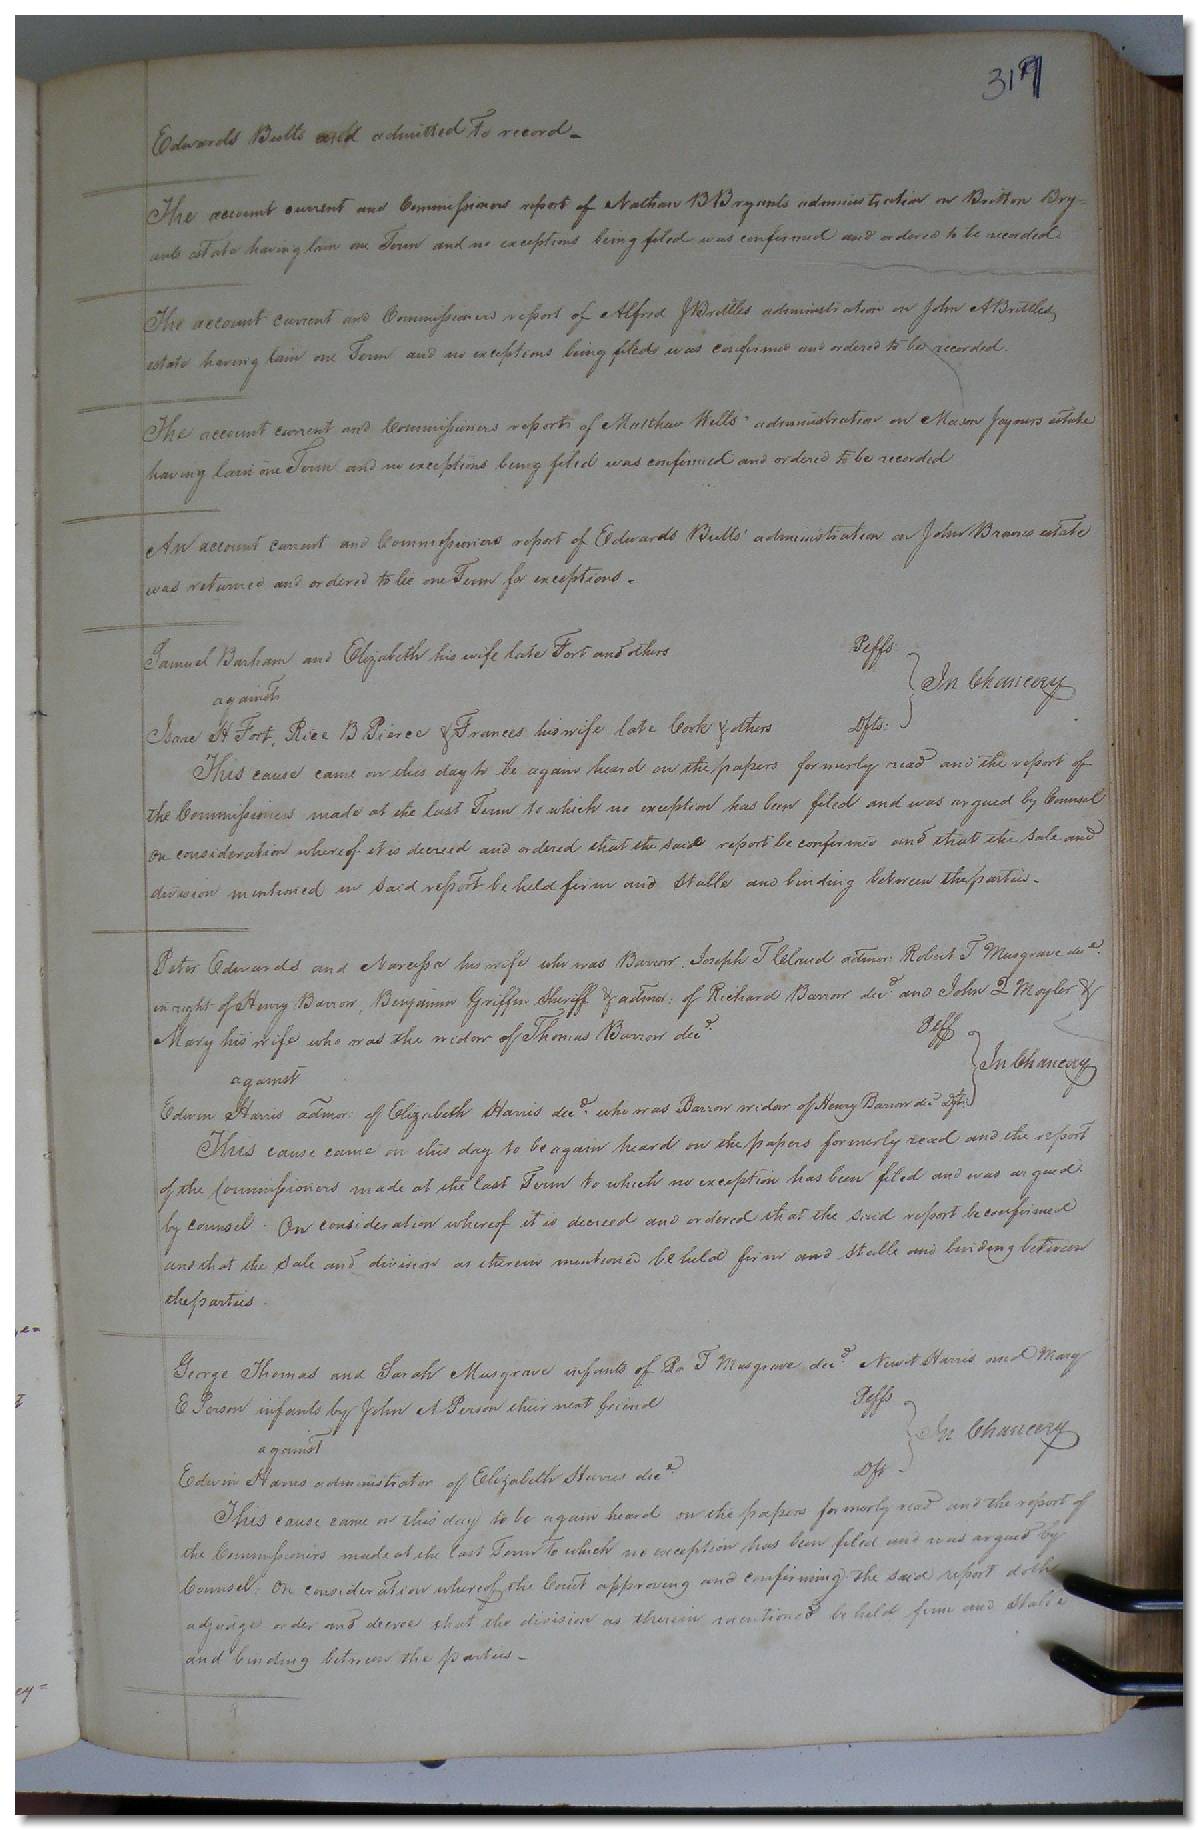 317
Edwards Butts and admitted to record_
The account current and Commissioners report of Nathan B Bryants administration on Britton Bry=
ants estate having lain one Term and no exceptions being filed was confirmed and ordered to be recorded.
The account current and Commissioners report of Alfred J Brittles administration on John A Brittles
estate having lain one Term and no exceptions being filed was confirmed and ordered to be recorded.
The account current and Commissioners report of Matthew Wills' administration on Mason Joyners estate
having lain one Term and no exceptions being filed was confirmed and ordered to be recorded
An account current and Commissioners report of Edwards Butts' administration on John Browns estate
was returned and ordered to lie one Term for exceptions_
Samuel Barham and Elizabeth his wife late Fort and others Peffs
In Chancery
against
Isaac H Fort, Rice B Pierce & Frances his wife late Cork & others Dfts:
This cause came on this day to be again heard on the papers formerly read and the report of
the Commissioners made at the last Term to which no exception has been filed and was argued by Counsel
On consideration whereof it is decreed and ordered that the said report be confirmed and that the sale and
division mentioned in said report be held firm and stable and binding between the parties_
Peter Edwards and Narcissa his wife who was Barrow. Joseph T Cloud admor: Robert T Musgrave decd.
in right of Henry Barrow, Benjamin Griffin Sheriff & admor: of Richard Barrow decd and John Q Moyler &
Mary his wife who was the widow of Thomas Barrow decd. Peff
In Chancery
against
Edwin Harris admor: of Elizabeth Harris decd. who was Barrow widow of Henry Barrow decd Dft:
This cause came on this day to be again heard on the papers formerly read and the report
of the Commissioners made at the last Term to which no exception has been filed and was argued
by counsel. On consideration whereof it is decreed and ordered that the said report be confirmed
and that the sale and division as therein mentioned be held firm and stable and binding between
the parties.
George Thomas and Sarah Musgrave infants of Ro T Musgrave decd. Newit Harris and Mary
E Person infants by John A Person their next friend Peffs
In Chancery
against
Edwin Harris administrator of Elizabeth Harris decd. Dft_
This cause came on this day to be again heard on the papers formerly read and the report of
the Commissioners made at the last Term to which no exception has been filed and was argued by
Counsel: On consideration whereof the Court approving and confirming the said report doth
adjudge order and decree that the division as therein mentioned be held firm and stable
and binding between the parties_